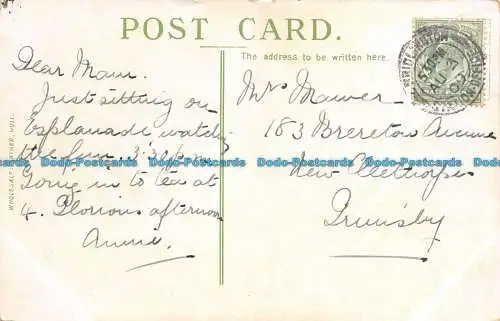 POST CARD.
The address to be written here.
Dear Mam.
Just sitting on
Esplanade watching
the sun. 3.30 p.m.
Going in to tea at
4. Glorious afternoon
Annie.
Mrs Mawer
183 Brereton Avenue
New Cleethorpes
Grimsby
BRIDLINGTON
Dodo-Postcards Dodo-Postcards Dodo-Postcards Dodo-Postcards Dodo-Postcards